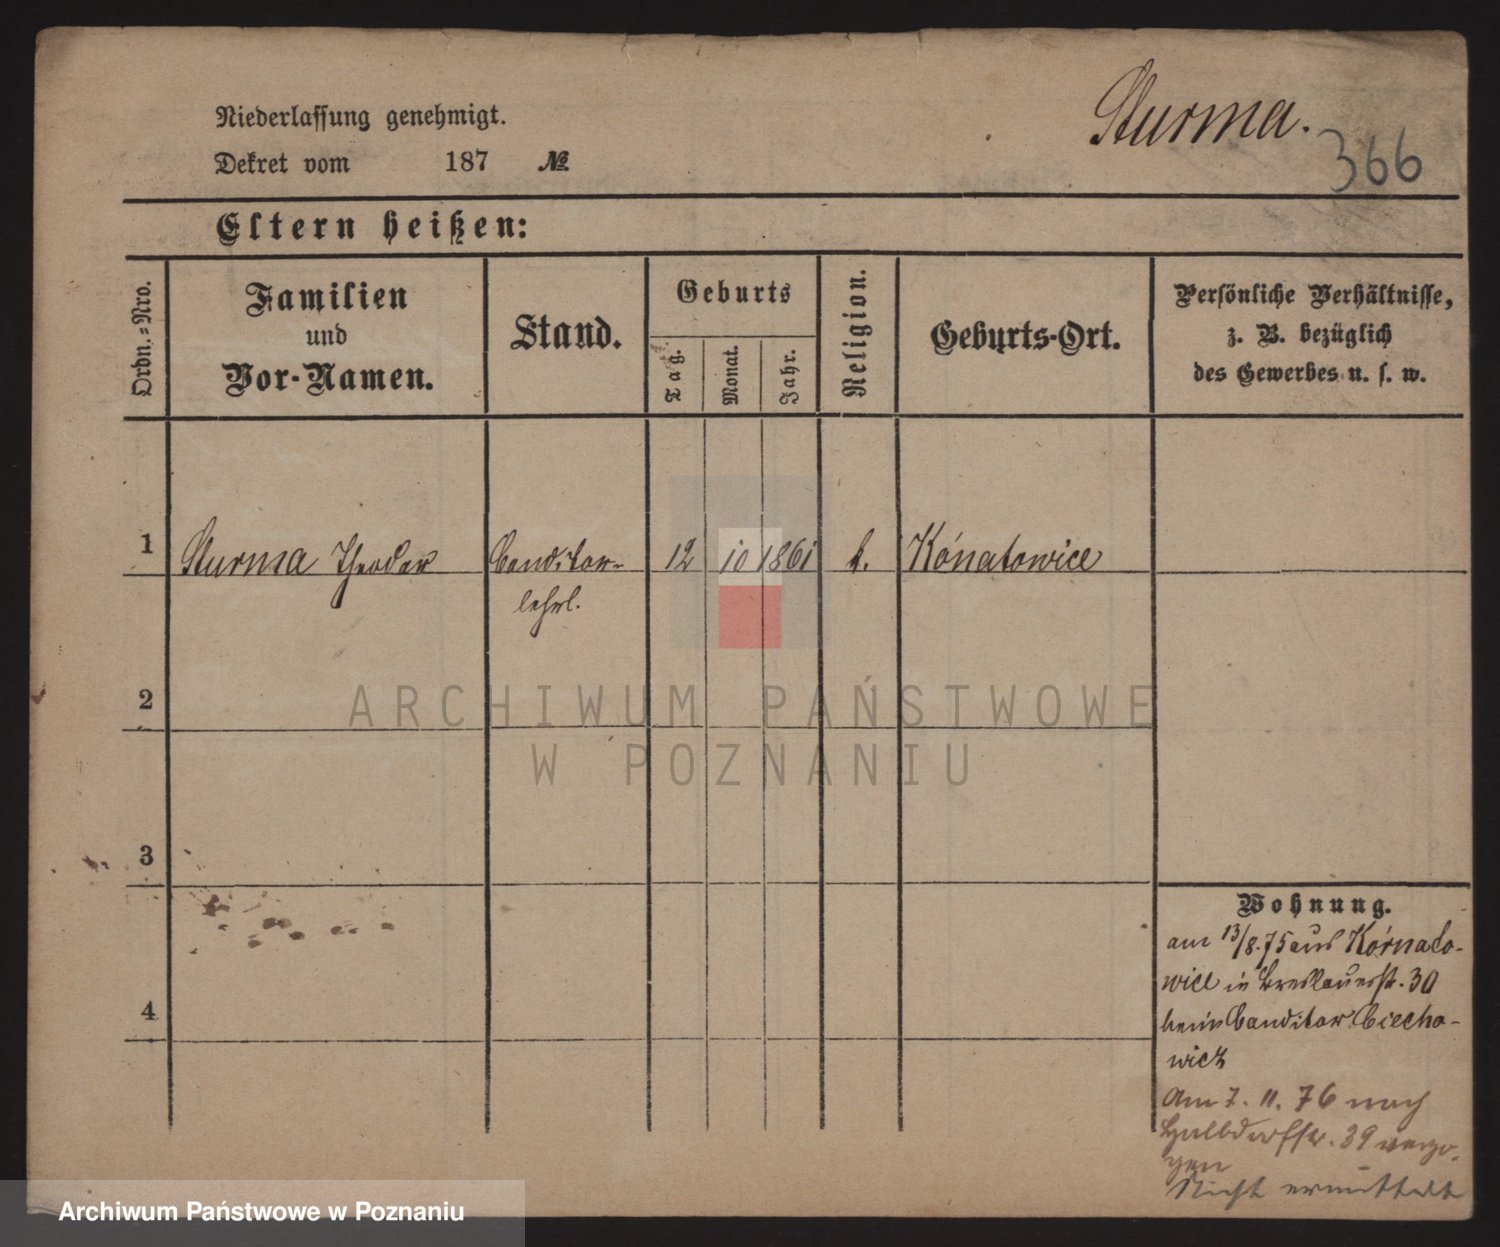 Sturma.
366
Niederlassung genehmigt.
Dekret vom 187 №
Eltern heißen:
Ordn.=Nro.
Familien
und
Vor-Namen.
Stand.
Geburts
Tag.
Monat.
Jahr.
Religion.
Geburts-Ort.
Persönliche Verhältnisse,
z. B. bezüglich
des Gewerbes u. s. w.
1 Sturma Theodor Conditor- 12 10 1861 k. Kónatowice
lehrl.
2
ARCHIWUM PAŃSTWOWE
W POZNANIU
3
Wohnung.
am 13/8.75 aus Kórnato-
wice in Breslauerstr. 30
beim Conditor Ciecho-
wicz
4
Am 7. 11. 76 nach
Halbdorfstr. 39 verzo-
gen
Nicht ermittelt
Archiwum Państwowe w Poznaniu